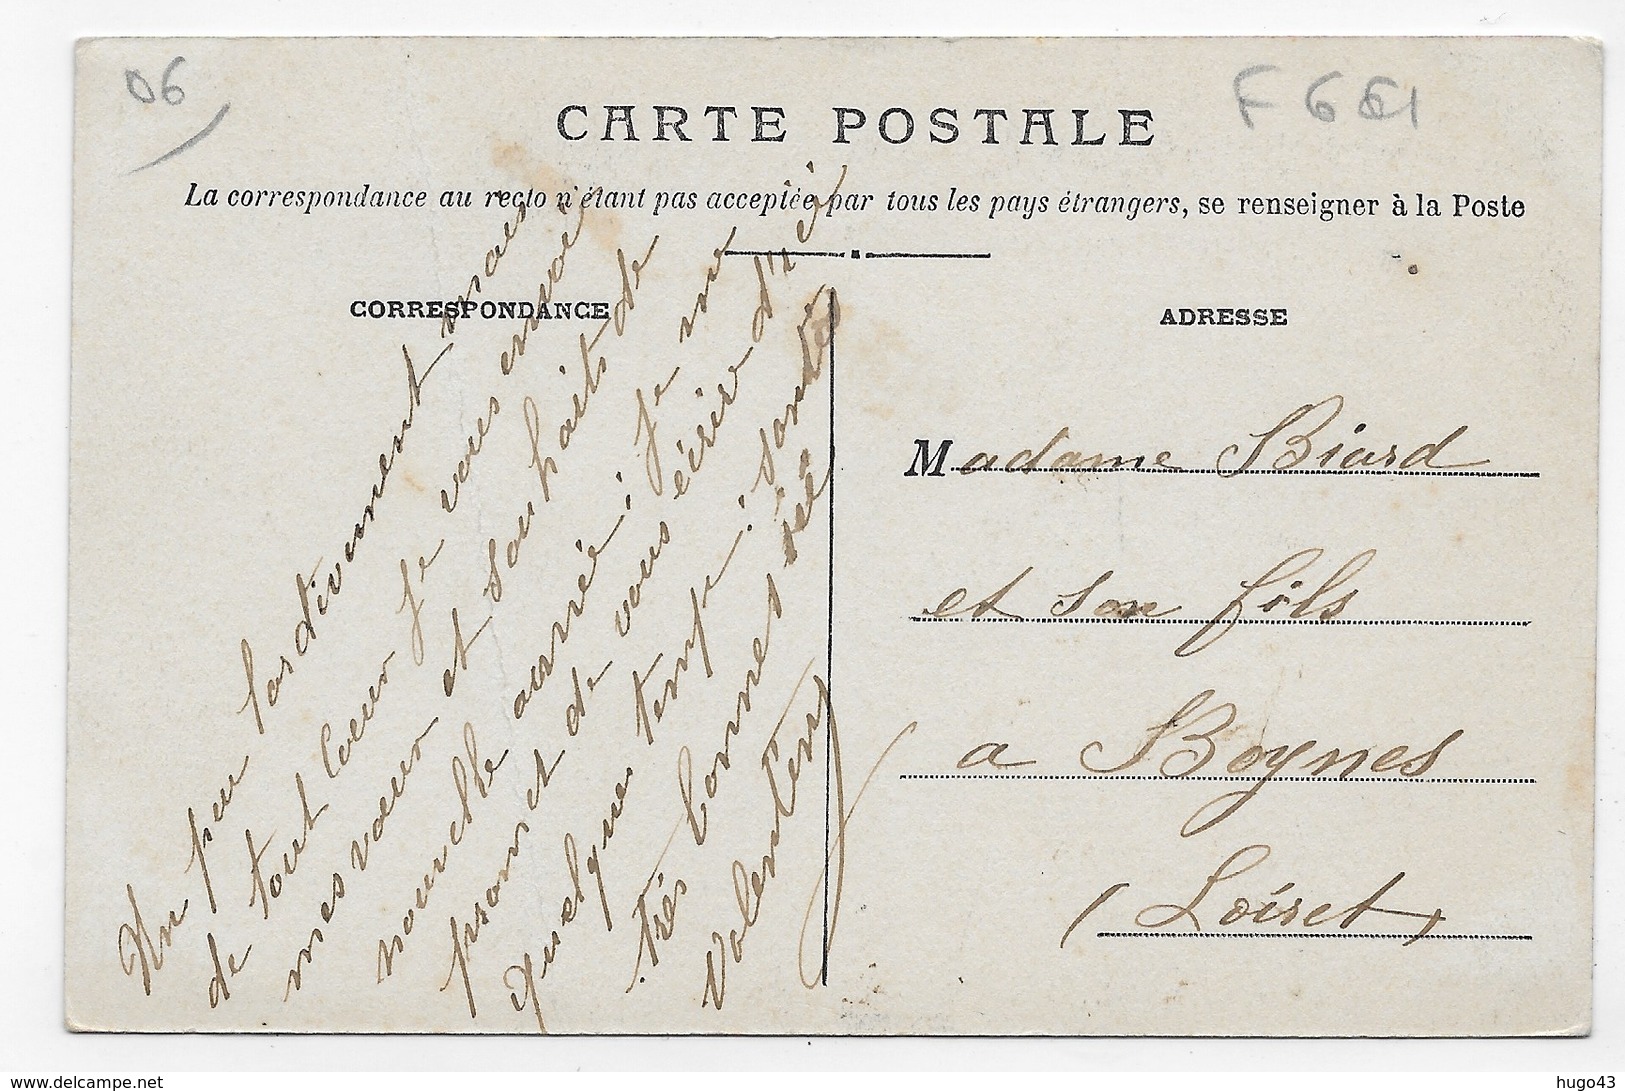 06
F 6 6 1
CARTE POSTALE
La correspondance au recto n'étant pas acceptée par tous les pays étrangers, se renseigner à la Poste
CORRESPONDANCE
Un peu tardivement mais
de tout cœur je vous envoie
mes vœux et souhaits de
nouvelle année; je me
promet de vous écrire d'ici
quelques temps; santé
très bonnes ici
Valentin
ADRESSE
Madame Biard
et son fils
a Boynes
(Loiret)
www.delcampe.net
hugo43